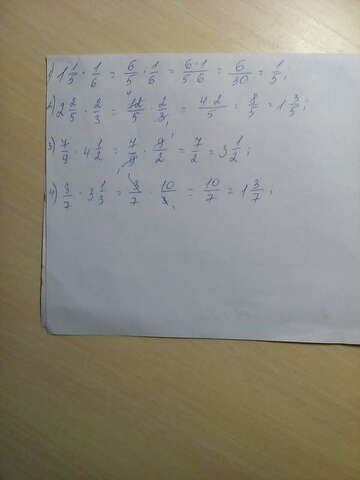 1) 1 1/5 · 1/6 = 6/5 · 1/6 = 6·1/5·6 = 6/30 = 1/5;
2) 2 2/5 · 2/3 = 12/5 · 2/3 = 4·2/5 = 8/5 = 1 3/5;
3) 7/9 · 4 1/2 = 7/9 · 9/2 = 7/2 = 3 1/2;
4) 3/7 · 3 1/3 = 3/7 · 10/3 = 10/7 = 1 3/7;